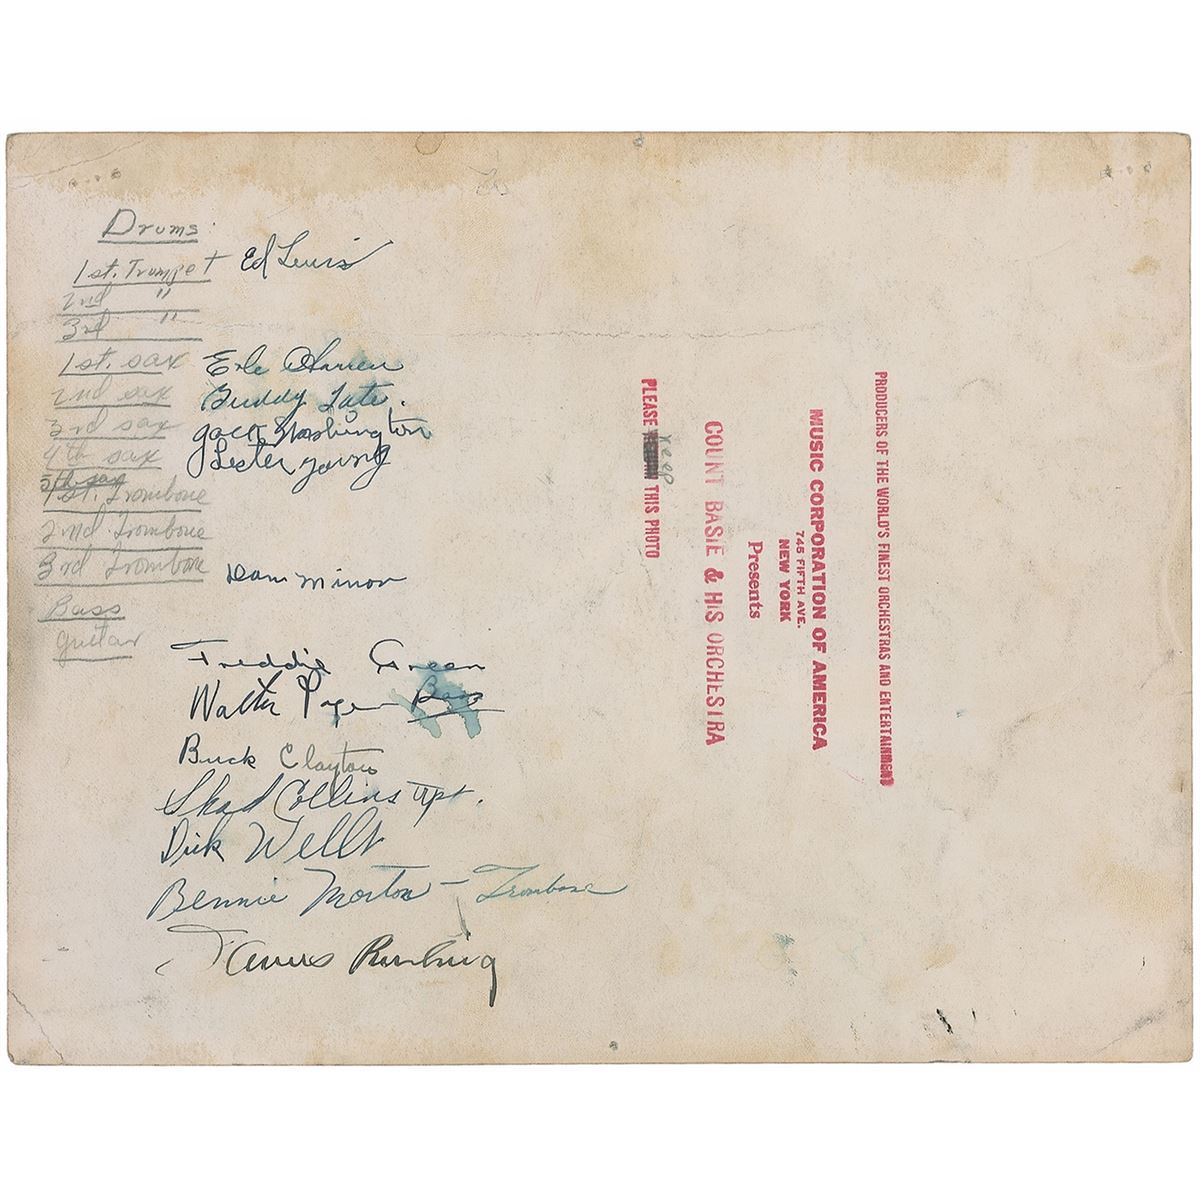 Drums
1st. Trumpet Ed Lewis
2nd "
3rd "
1st. sax Erle Warren
2nd sax Buddy Tate.
3rd sax Jack Washington
4th sax Lester Young
5th sax
1st. Trombone
2nd Trombone
3rd Trombone Dan Minor
Bass
guitar
Freddie Green
Walter Page Bass
Buck Clayton
Shad Collins Tpt.
Dick Wells
Bennie Morton - Trombone
James Rushing
PLEASE keep THIS PHOTO
COUNT BASIE & HIS ORCHESTRA
Presents
NEW YORK
745 FIFTH AVE.
MUSIC CORPORATION OF AMERICA
PRODUCERS OF THE WORLD'S FINEST ORCHESTRAS AND ENTERTAINMENT